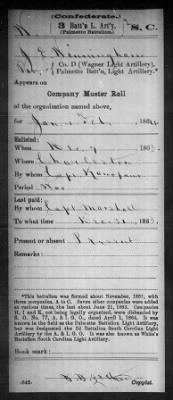 (Confederate.)
3 Batt'n L. Art'y. S. C.
(Palmetto Battalion.)
Pvt., Co. D (Wagner Light Artillery),
Palmetto Batt'n, Light Artillery.*
Appears on
Company Muster Roll
of the organization named above,
for Jan & Feb, 1864
Enlisted:
When 186
Where Charleston
By whom Capt
Period War
Last paid:
By whom Capt. Marshall
To what time Dec 31, 1863
Present or absent Present
Remarks:
*This battalion was formed about November, 1861, with
three companies, A to C. Seven other companies were added
at various times, the last about June 21, 1862. Companies
H, I and K, not being legally organized, were disbanded by
S. O. No. 77, A. & I. G. O., dated April 1, 1864. It was
known in the field as the Palmetto Battalion Light Artillery,
but was designated the 3d Battalion South Carolina Light
Artillery by the A. & I. G. O. It was also known as White's
Battalion South Carolina Light Artillery.
Book mark:
(642)
Copyist.